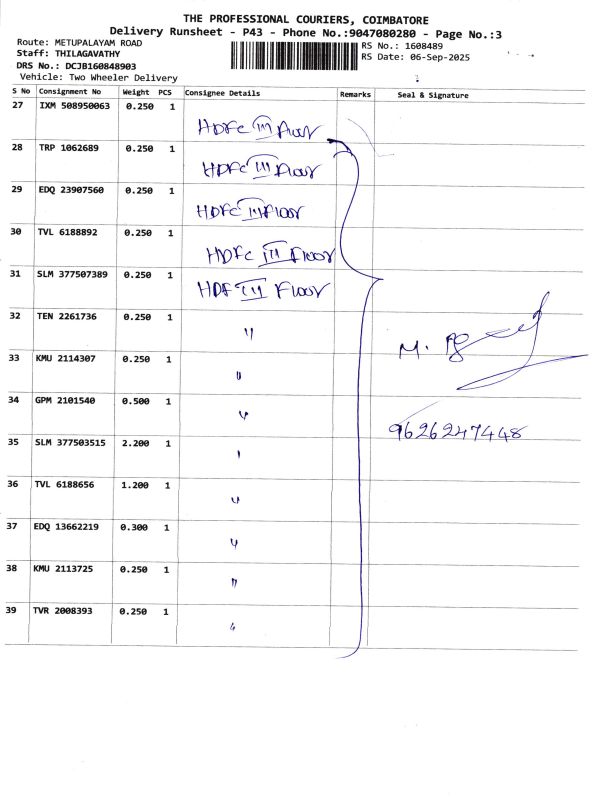 THE PROFESSIONAL COURIERS, COIMBATORE
Delivery Runsheet - P43 - Phone No.:9047080280 - Page No.:3
Route: METUPALAYAM ROAD
RS No.: 1608489
Staff: THILAGAVATHY
RS Date: 06-Sep-2025
DRS No.: DCJB160848903
Vehicle: Two Wheeler Delivery
S No Consignment No Weight PCS Consignee Details Remarks Seal & Signature
27 IXM 508950063 0.250 1
HDFC III Floor
28 TRP 1062689 0.250 1
HDFC III Floor
29 EDQ 23907560 0.250 1
HDFC III Floor
30 TVL 6188892 0.250 1
HDFC III Floor
31 SLM 377507389 0.250 1
HDF III Floor
32 TEN 2261736 0.250 1
"
M.
33 KMU 2114307 0.250 1
"
34 GPM 2101540 0.500 1
"
9626247448
35 SLM 377503515 2.200 1
"
36 TVL 6188656 1.200 1
"
37 EDQ 13662219 0.300 1
"
38 KMU 2113725 0.250 1
"
39 TVR 2008393 0.250 1
"